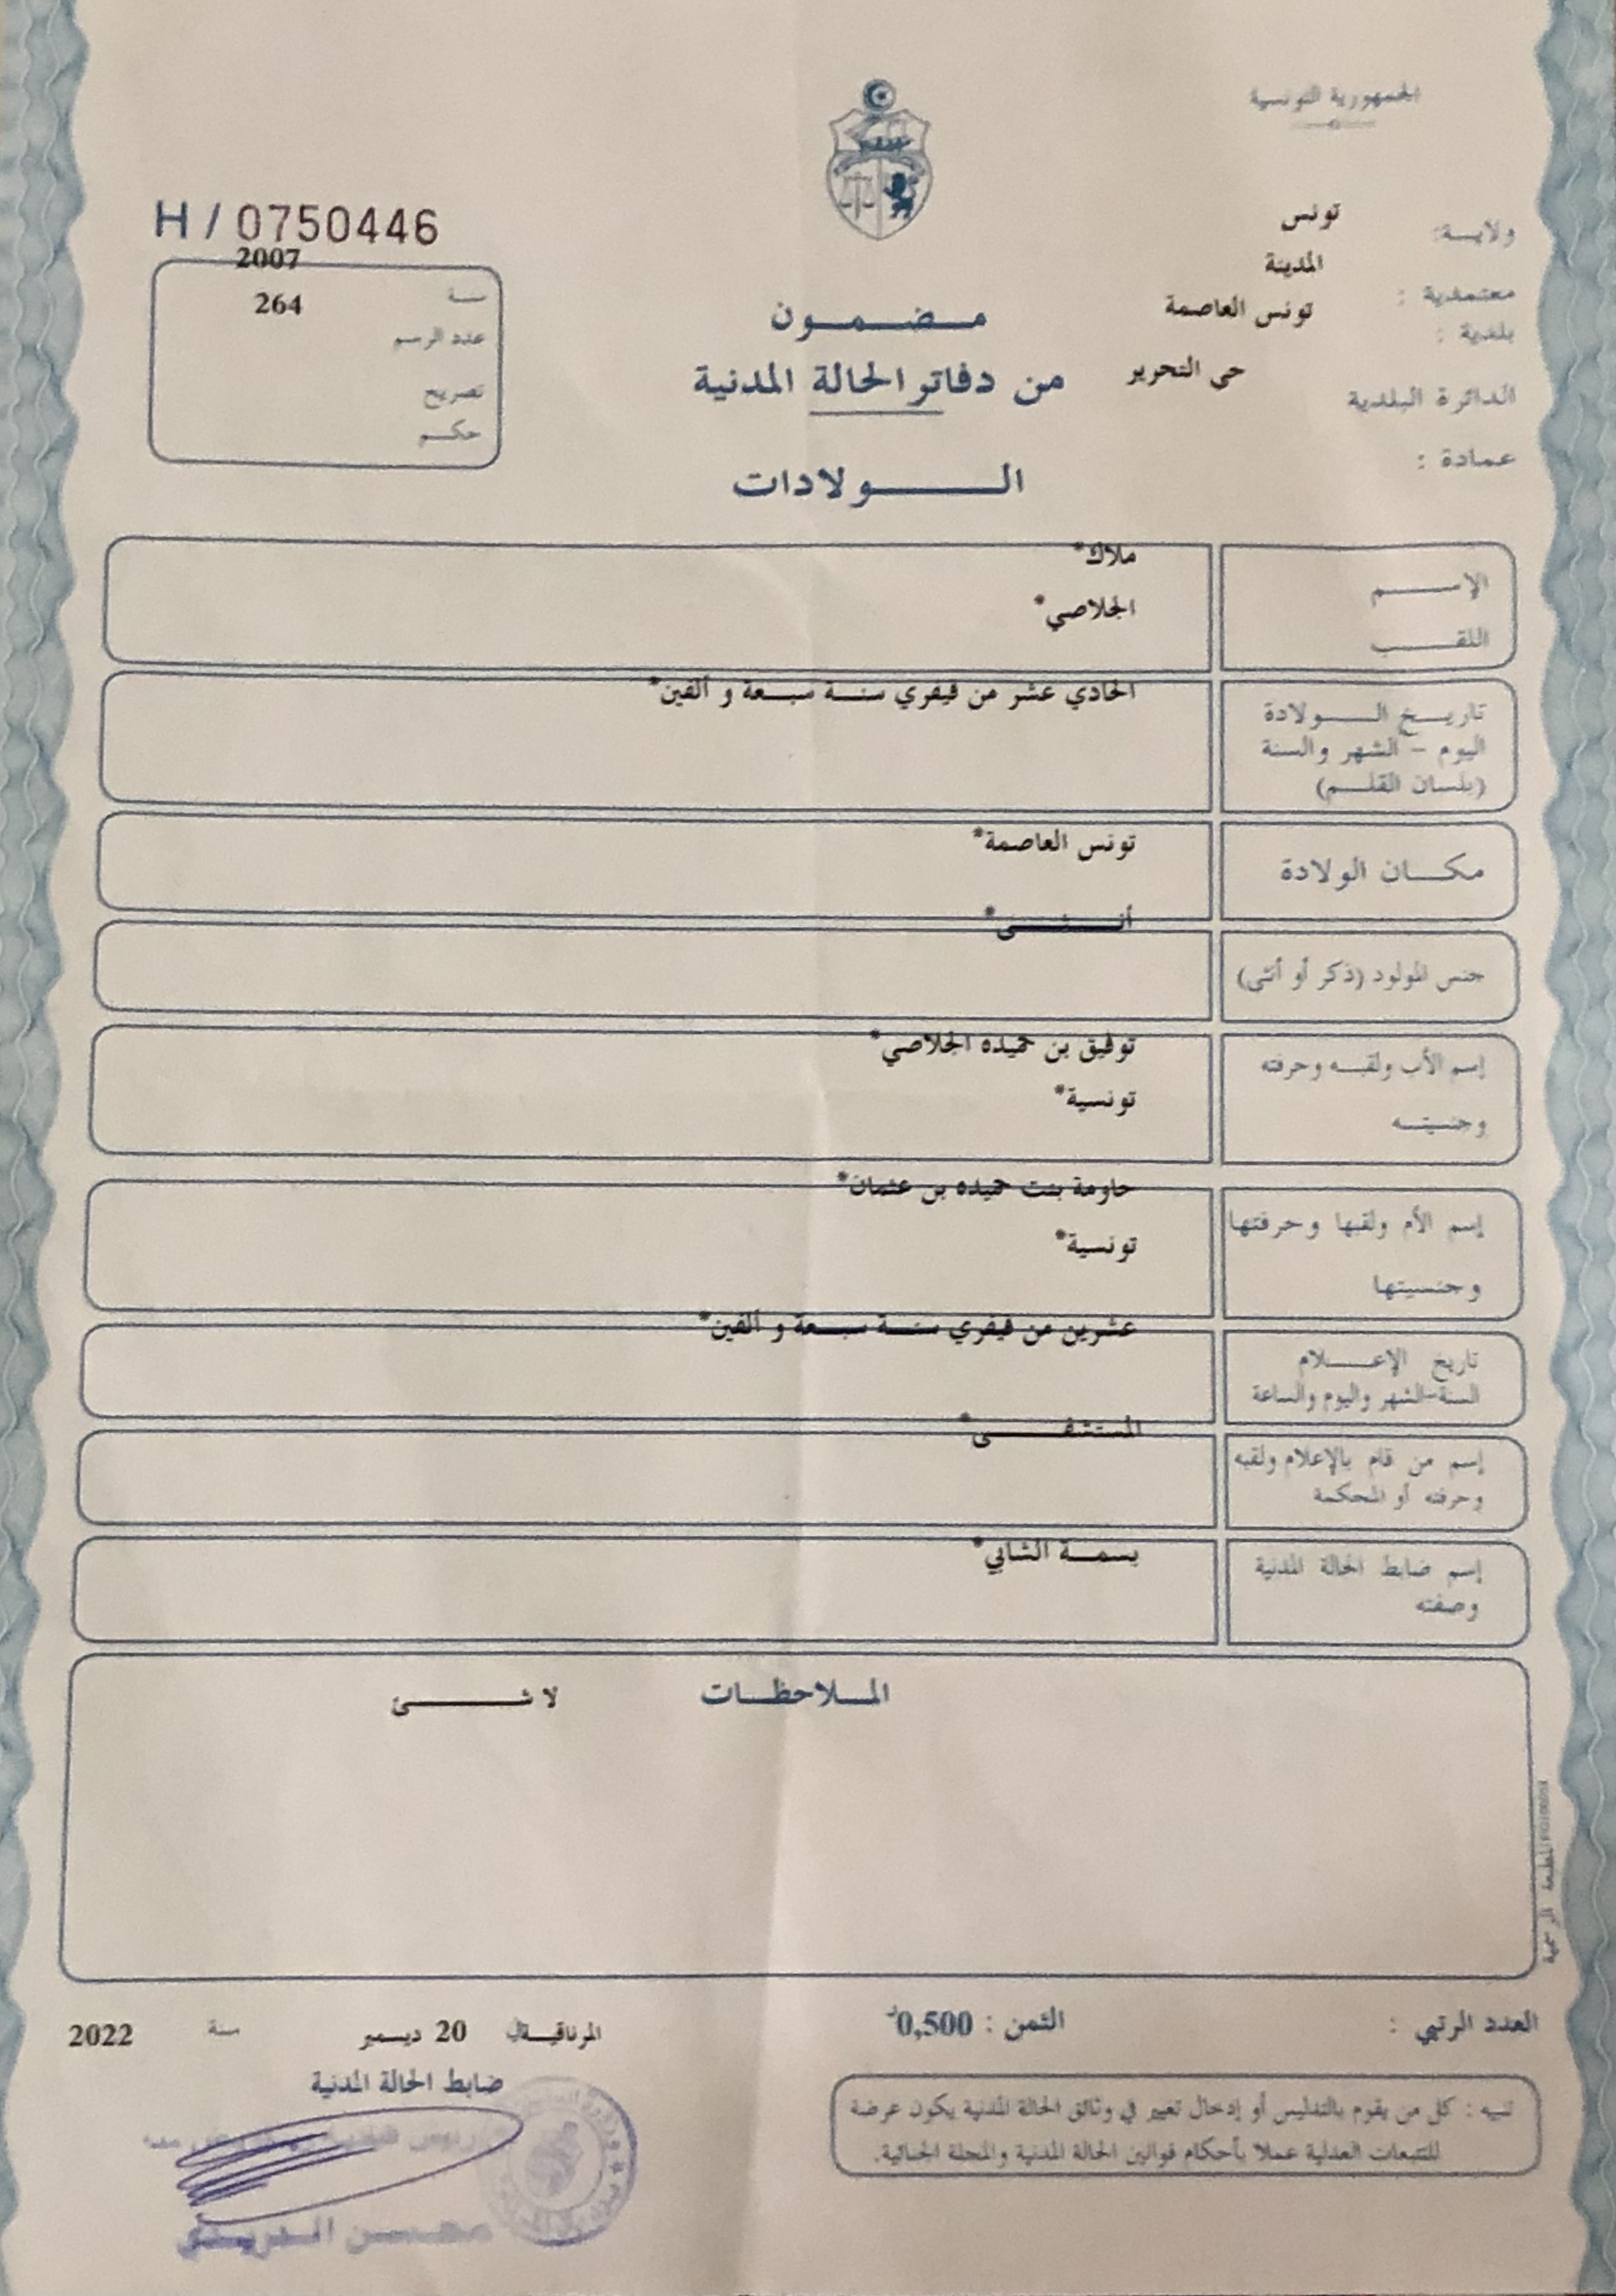 الجمهورية التونسية
ولايـــة: تونس
معتمدية : المدينة
بلدية : تونس العاصمة
الدائرة البلدية حي التحرير
عمادة :
H / 0750446
سنة 2007
عدد الرسم 264
تصريح
حكم
مضمون
من دفاتر الحالة المدنية
الولادات
الإسم ملاك*
اللقب الجلاصي*
تاريخ الولادة الحادي عشر من فيفري سنة سبعة و ألفين*
اليوم - الشهر والسنة
(بلسان القلم)
مكان الولادة تونس العاصمة*
جنس المولود (ذكر أو أنثى) أنثى*
إسم الأب ولقبه وحرفته توفيق بن حميده الجلاصي*
وجنسيته تونسية*
إسم الأم ولقبها وحرفتها حاومة بنت حميده بن عثمان*
وجنسيتها تونسية*
تاريخ الإعلام عشرين من فيفري سنة سبعة و ألفين*
السنة-الشهر واليوم والساعة
إسم من قام بالإعلام ولقبه المستشفى*
وحرفته أو المحكمة
إسم ضابط الحالة المدنية بسمة الشابي*
وصفته
الملاحظات لا شئ
المطبعة الرسمية
العدد الرتبي :
الثمن : 0,500د
المرناقية في 20 ديسمبر سنة 2022
ضابط الحالة المدنية
محسن الدريدي
تنبيه : كل من يقوم بالتدليس أو إدخال تغيير في وثائق الحالة المدنية يكون عرضة
للتتبعات العدلية عملا بأحكام قوانين الحالة المدنية والمجلة الجنائية.